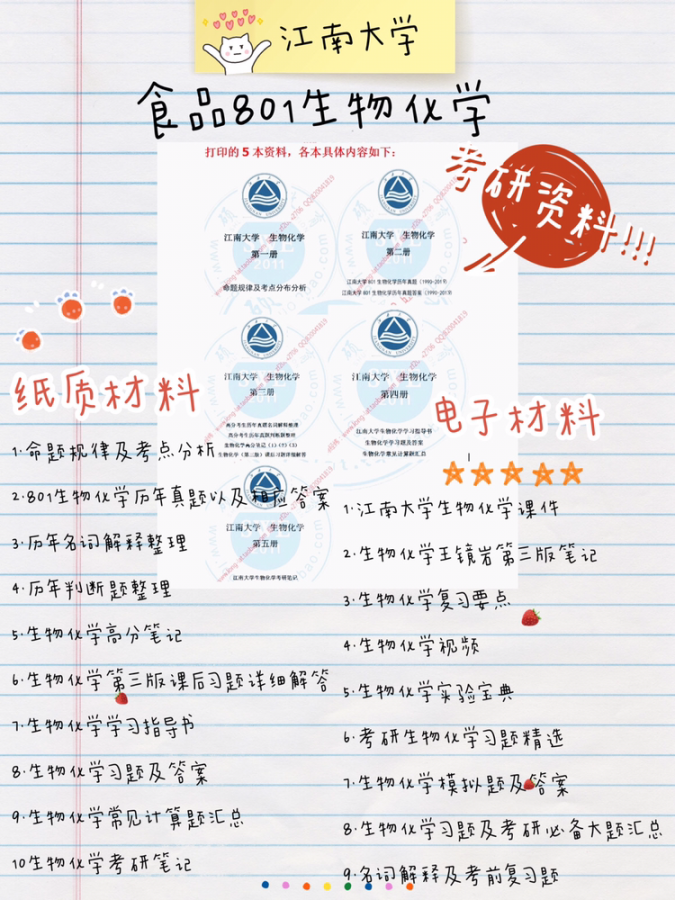 江南大学
食品801生物化学
考研资料!!!
打印的5本资料，各本具体内容如下：
江南大学 生物化学
第一册
命题规律及考点分布分析
江南大学 生物化学
第二册
江南大学 生物化学
第三册
高分考生历年真题名词解释整理
高分考生历年真题判断题整理
江南大学 生物化学
第四册
江南大学生物化学学习指导书
生物化学学习题及答案
生物化学常见计算题汇总
江南大学 生物化学
第五册
江南大学生物化学考研笔记
纸质材料
1.命题规律及考点分析
2.801生物化学历年真题以及相应答案
3.历年名词解释整理
4.历年判断题整理
5.生物化学高分笔记
6.生物化学第三版课后习题详细解答
7.生物化学学习指导书
8.生物化学习题及答案
9.生物化学常见计算题汇总
10生物化学考研笔记
电子材料
1.江南大学生物化学课件
2.生物化学王镜岩第三版笔记
3.生物化学复习要点
4.生物化学视频
5.生物化学实验宝典
6.考研生物化学习题精选
7.生物化学模拟题及答案
8.生物化学习题及考研必备大题汇总
9.名词解释及考前复习题